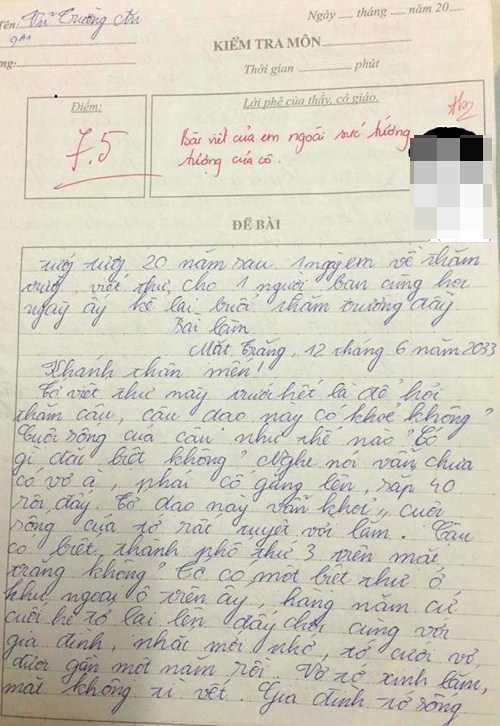 Tên: Vũ Trường An
9A1
Ngày ___ tháng ___ năm 20 ___
KIỂM TRA MÔN
ng:
Thời gian ___ phút
Điểm:
7.5
Lời phê của thầy, cô giáo.
Bài viết của em ngoài sức tưởng
tượng của cô.
ĐỀ BÀI
20 năm sau 1 ngày em về thăm
trường, viết thư cho 1 người bạn cùng học
ngày ấy kể lại buổi thăm trường đầy
Bài làm
Mặt Trăng, 12 tháng 6 năm 2033
Khanh thân mến!
Tớ viết thư này trước hết là để hỏi
thăm cậu, cậu dạo này có khoẻ không?
Cuộc sống của cậu như thế nào? Có
gì đặc biệt không? Nghe nói vẫn chưa
có vợ à, phải cố gắng lên, sắp 40
rồi đấy. Tớ dạo này vẫn khoẻ, cuộc
sống của tớ rất tuyệt vời lắm. Cậu
có biết thành phố thứ 3 trên mặt
trăng không? Tớ có một biệt thự ở
khu ngoại ô trên ấy, hàng năm cứ
cuối hè tớ lại lên đấy chơi cùng với
gia đình, nhắc mới nhớ, tớ cưới vợ
được gần một năm rồi. Vợ tớ xinh lắm,
mặt không tì vết. Gia đình tớ sống